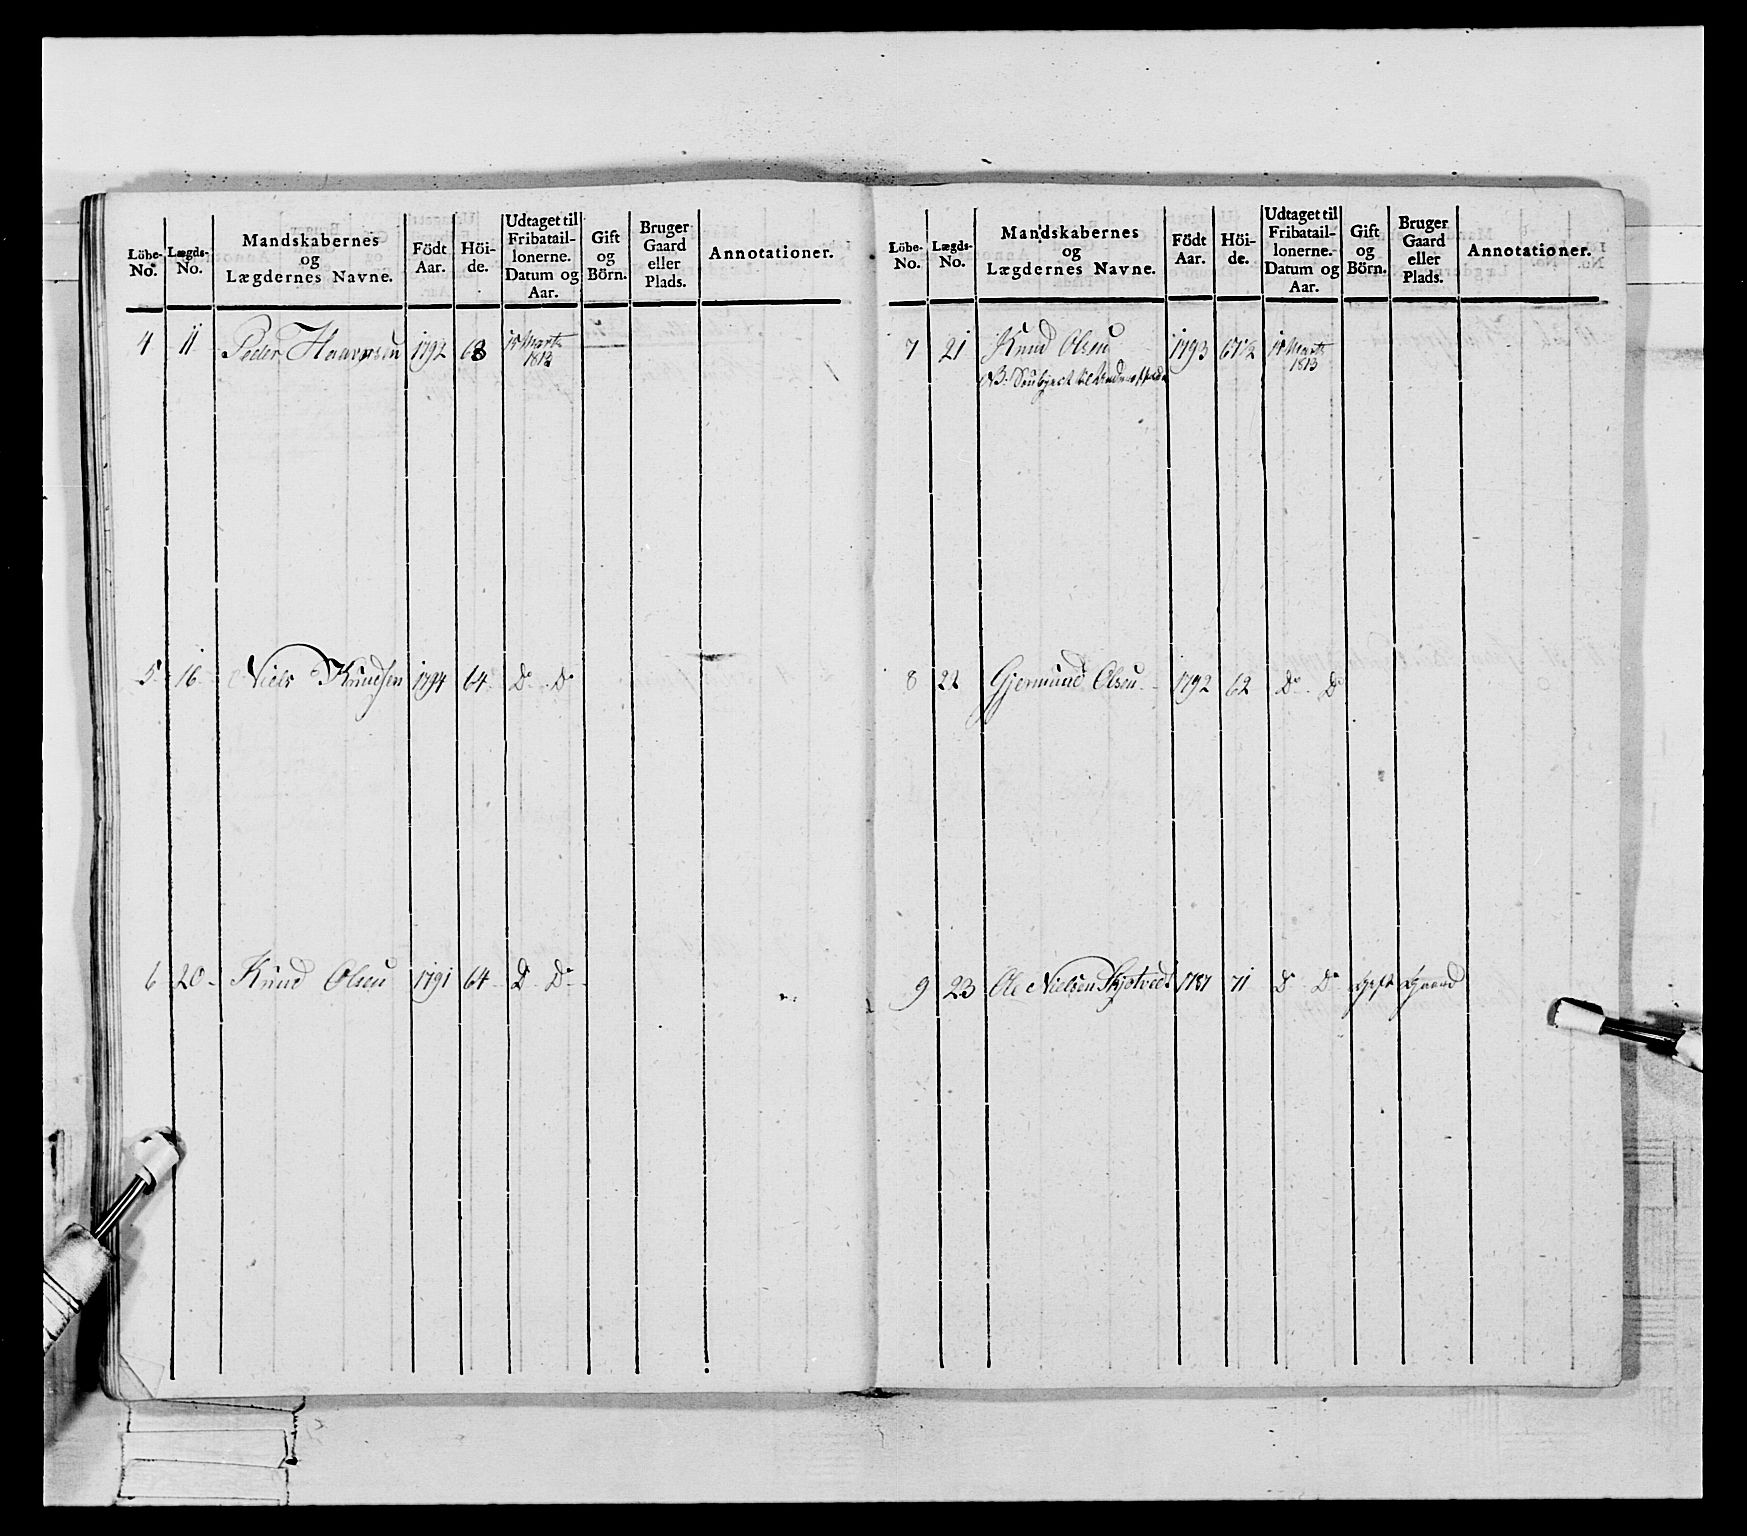 Löbe-No. Lægds-No. Mandskabernes og Lægdernes Navne. Födt Aar. Höi-de. Udtaget til Fribatail-lonerne. Datum og Aar. Gift og Börn. Bruger Gaard eller Plads. Annotationer.
4 11 Peder 1792 68 Marts 1813
5 16 Niels Knudsen 1794 64 Do Do
6 20 Knud Olsen 1791 64 Do Do
Löbe-No. Lægds-No. Mandskabernes og Lægdernes Navne. Födt Aar. Höi-de. Udtaget til Fribatail-lonerne. Datum og Aar. Gift og Börn. Bruger Gaard eller Plads. Annotationer.
7 21 Knud Olsen 1793 67 1/2 Marts 1813
NB. Soubject til
8 22 Gjermund Olsen 1792 62 Do Do
9 23 Ole Nielsen Skjotvedt 1787 71 Do Do Gift Gaard